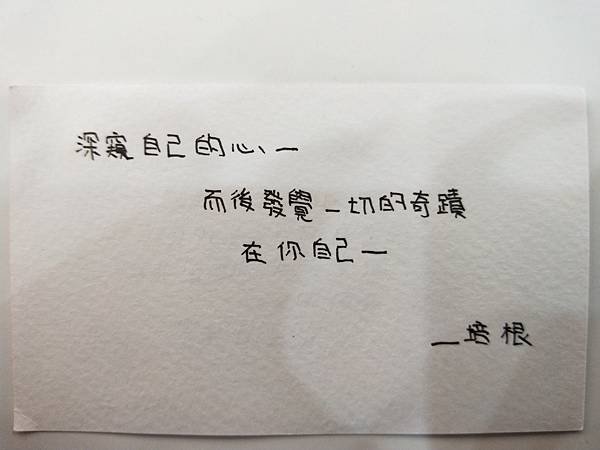 深窺自己的心、—
而後發覺一切的奇蹟
在你自己—
—培根